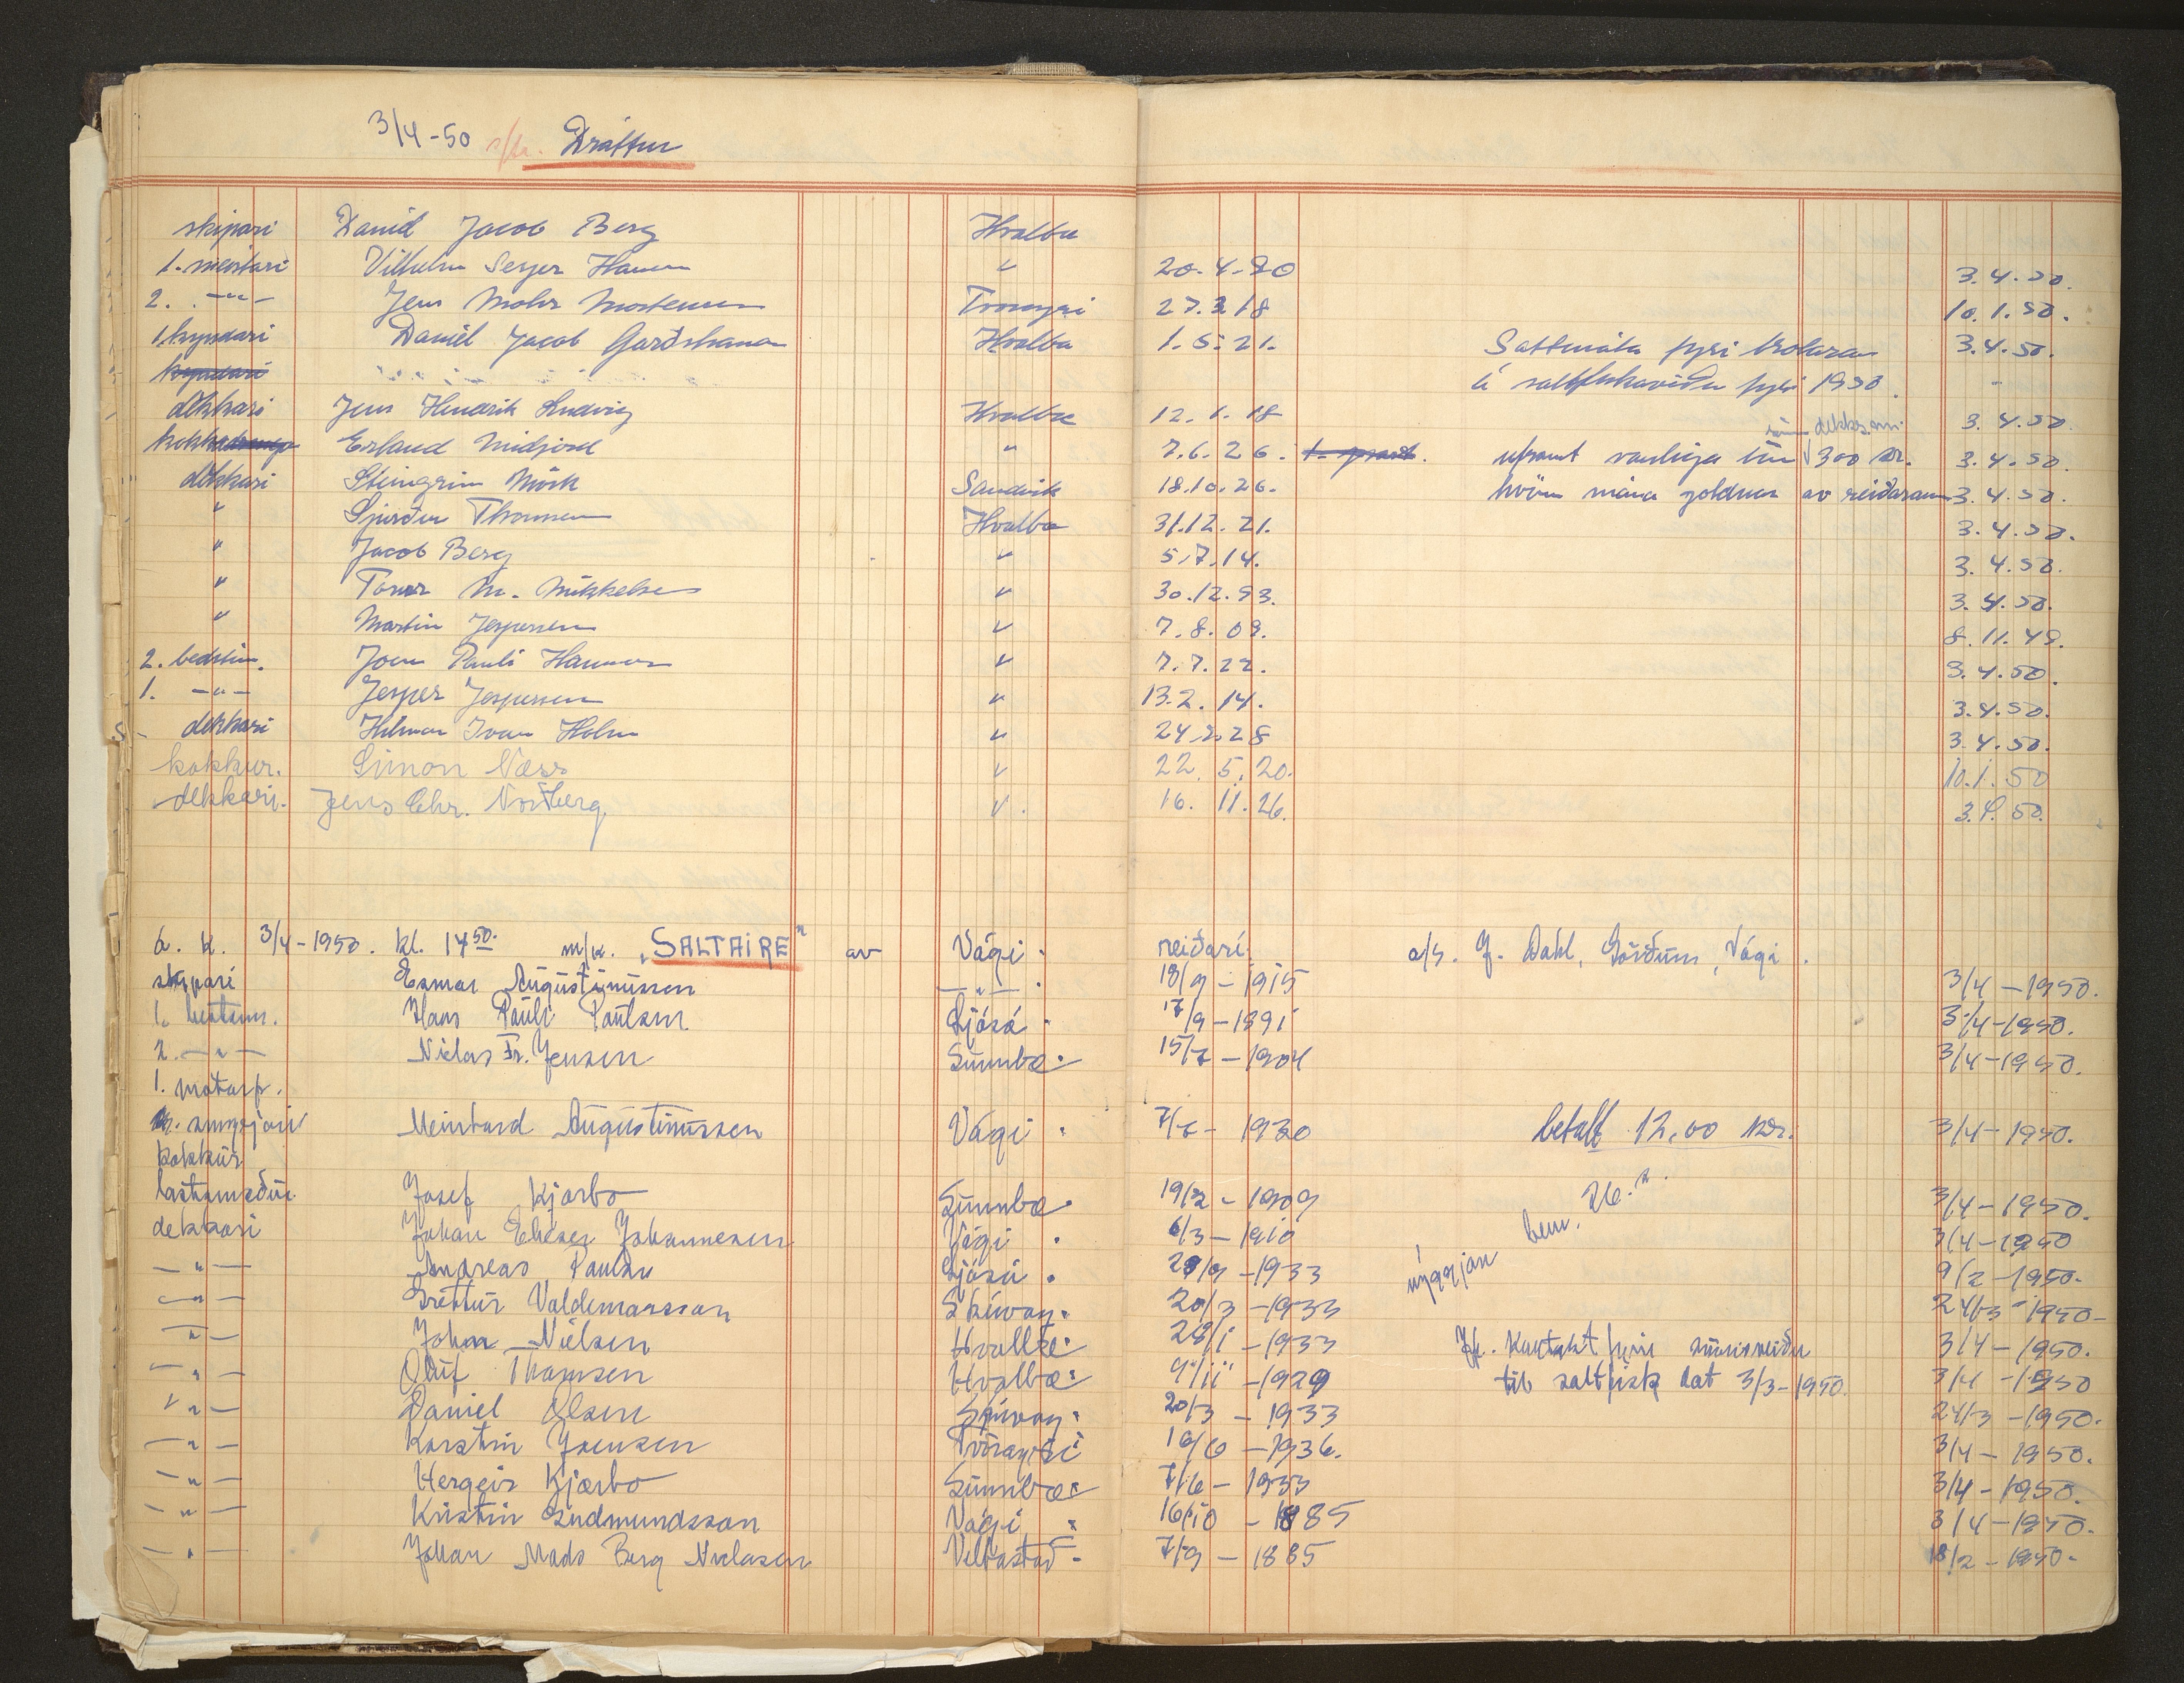 3/4-50 s/tr. Dráttur
skipari Daniel Jacob Berg Hvalba
1. meistari Vilhelm Seyer Hansen " 20.4.20 3.4.50.
2. -"- Jens Mohr Mortensen Tvøroyri 27.3.18 10.1.50.
1. kyndari Daniel Jacob Garðshamar Hvalba 1.5.21. Sáttmála fyri trolaran 3.4.50.
kyndari á saltfiskaveiðu fyri 1950. "
dekkari Jens Hendrik Ludvig Hvalba 12.1.18 3.4.50.
kokka Erland Midjord " 7.6.26. umframt vanliga dekksm. 300 kr. 3.4.50.
dekkari Steingrim Mörk Sandvik 18.10.26. hvönn mána goldnar av reiðaranum 3.4.50.
" Sjurður Thomsen Hvalba 31.12.21. 3.4.50.
" Jacob Berg " 5.7.14. 3.4.50.
" M. Mikkelsen " 30.12.93. 3.4.50.
" Martin Jespersen " 7.8.09. 8.11.49.
2. bedstm. Joen Pauli Hammer " 7.7.22. 3.4.50.
1. -"- Jesper Jespersen " 13.2.14. 3.4.50.
dekkari Hilmar Ivan Holm " 24.2.28 3.4.50.
kokkur. Simon Næss " 22.5.20. 10.1.50
dekkari. Jens Chr. Norðberg " 16.11.26. 3.4.50.
á. k. 3/4-1950. kl. 14 50. m/sk. "SALTAIRE" av Vági. reiðari. a/s. J. Dahl, Görðum, Vági.
skipari Esmar Augustinussen -"-. 18/9-1915 3/4-1950.
1. bestm. Hans Pauli Paulsen Ljósá. 17/9-1891 3/4-1950.
2. -"- Niclas Fr. Jensen Sumba. 15/7-1904 3/4-1950.
1. motorp.
m. smyrjari Meinhard Augustinussen Vági. 7/7-1930 betalt 12,00 kr. 3/4-1950.
kokkur
lastumaður Josef Kjærbo Sumba. 19/2-1909 3/4-1950.
dekkari Johan Elieser Johannesen Vági. 6/3-1910 nýggjan bem. 26." 3/4-1950
-"- Andreas Paulsen Ljósá. 29/9-1933 9/2-1950.
-"- Grettur Valdemarsson Skúvoy. 20/3-1933 24/3-1950
-"- John Nielsen Hvalba. 28/1-1933 Jf. Kontrakt fyri 3/4-1950.
-"- Oluf Thomsen Hvalba. 9/11-1929 til saltfisk dat 3/3-1950. 3/4-1950
-"- Daniel Olsen Skúvoy. 20/3-1933 24/3-1950.
-"- Karstin Joensen Tvöroyri 10/6-1936. 3/4-1950.
-"- Hergeir Kjærbo Sumba. 7/6-1933 3/4-1950.
-"- Kristin Gudmundsson Vági. 16/10-1885 3/4-1950.
-"- Johan Mads Berg Niclasen Velbastað. 7/9-1885 18/2-1950.